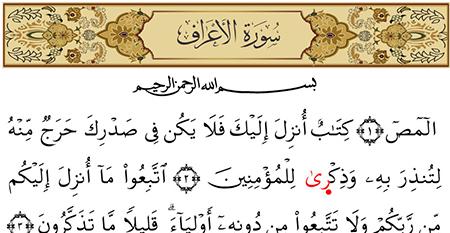 سُورَةُ الأَعْرَافِ
بِسْمِ اللَّهِ الرَّحْمَٰنِ الرَّحِيمِ
الٓمٓصٓ ﴿١﴾ كِتَٰبٌ أُنزِلَ إِلَيْكَ فَلَا يَكُن فِى صَدْرِكَ حَرَجٌ مِّنْهُ
لِتُنذِرَ بِهِۦ وَذِكْرَىٰ لِلْمُؤْمِنِينَ ﴿٢﴾ ٱتَّبِعُوا۟ مَآ أُنزِلَ إِلَيْكُم
مِّن رَّبِّكُمْ وَلَا تَتَّبِعُوا۟ مِن دُونِهِۦٓ أَوْلِيَآءَ ۗ قَلِيلًا مَّا تَذَكَّرُونَ ﴿٣﴾